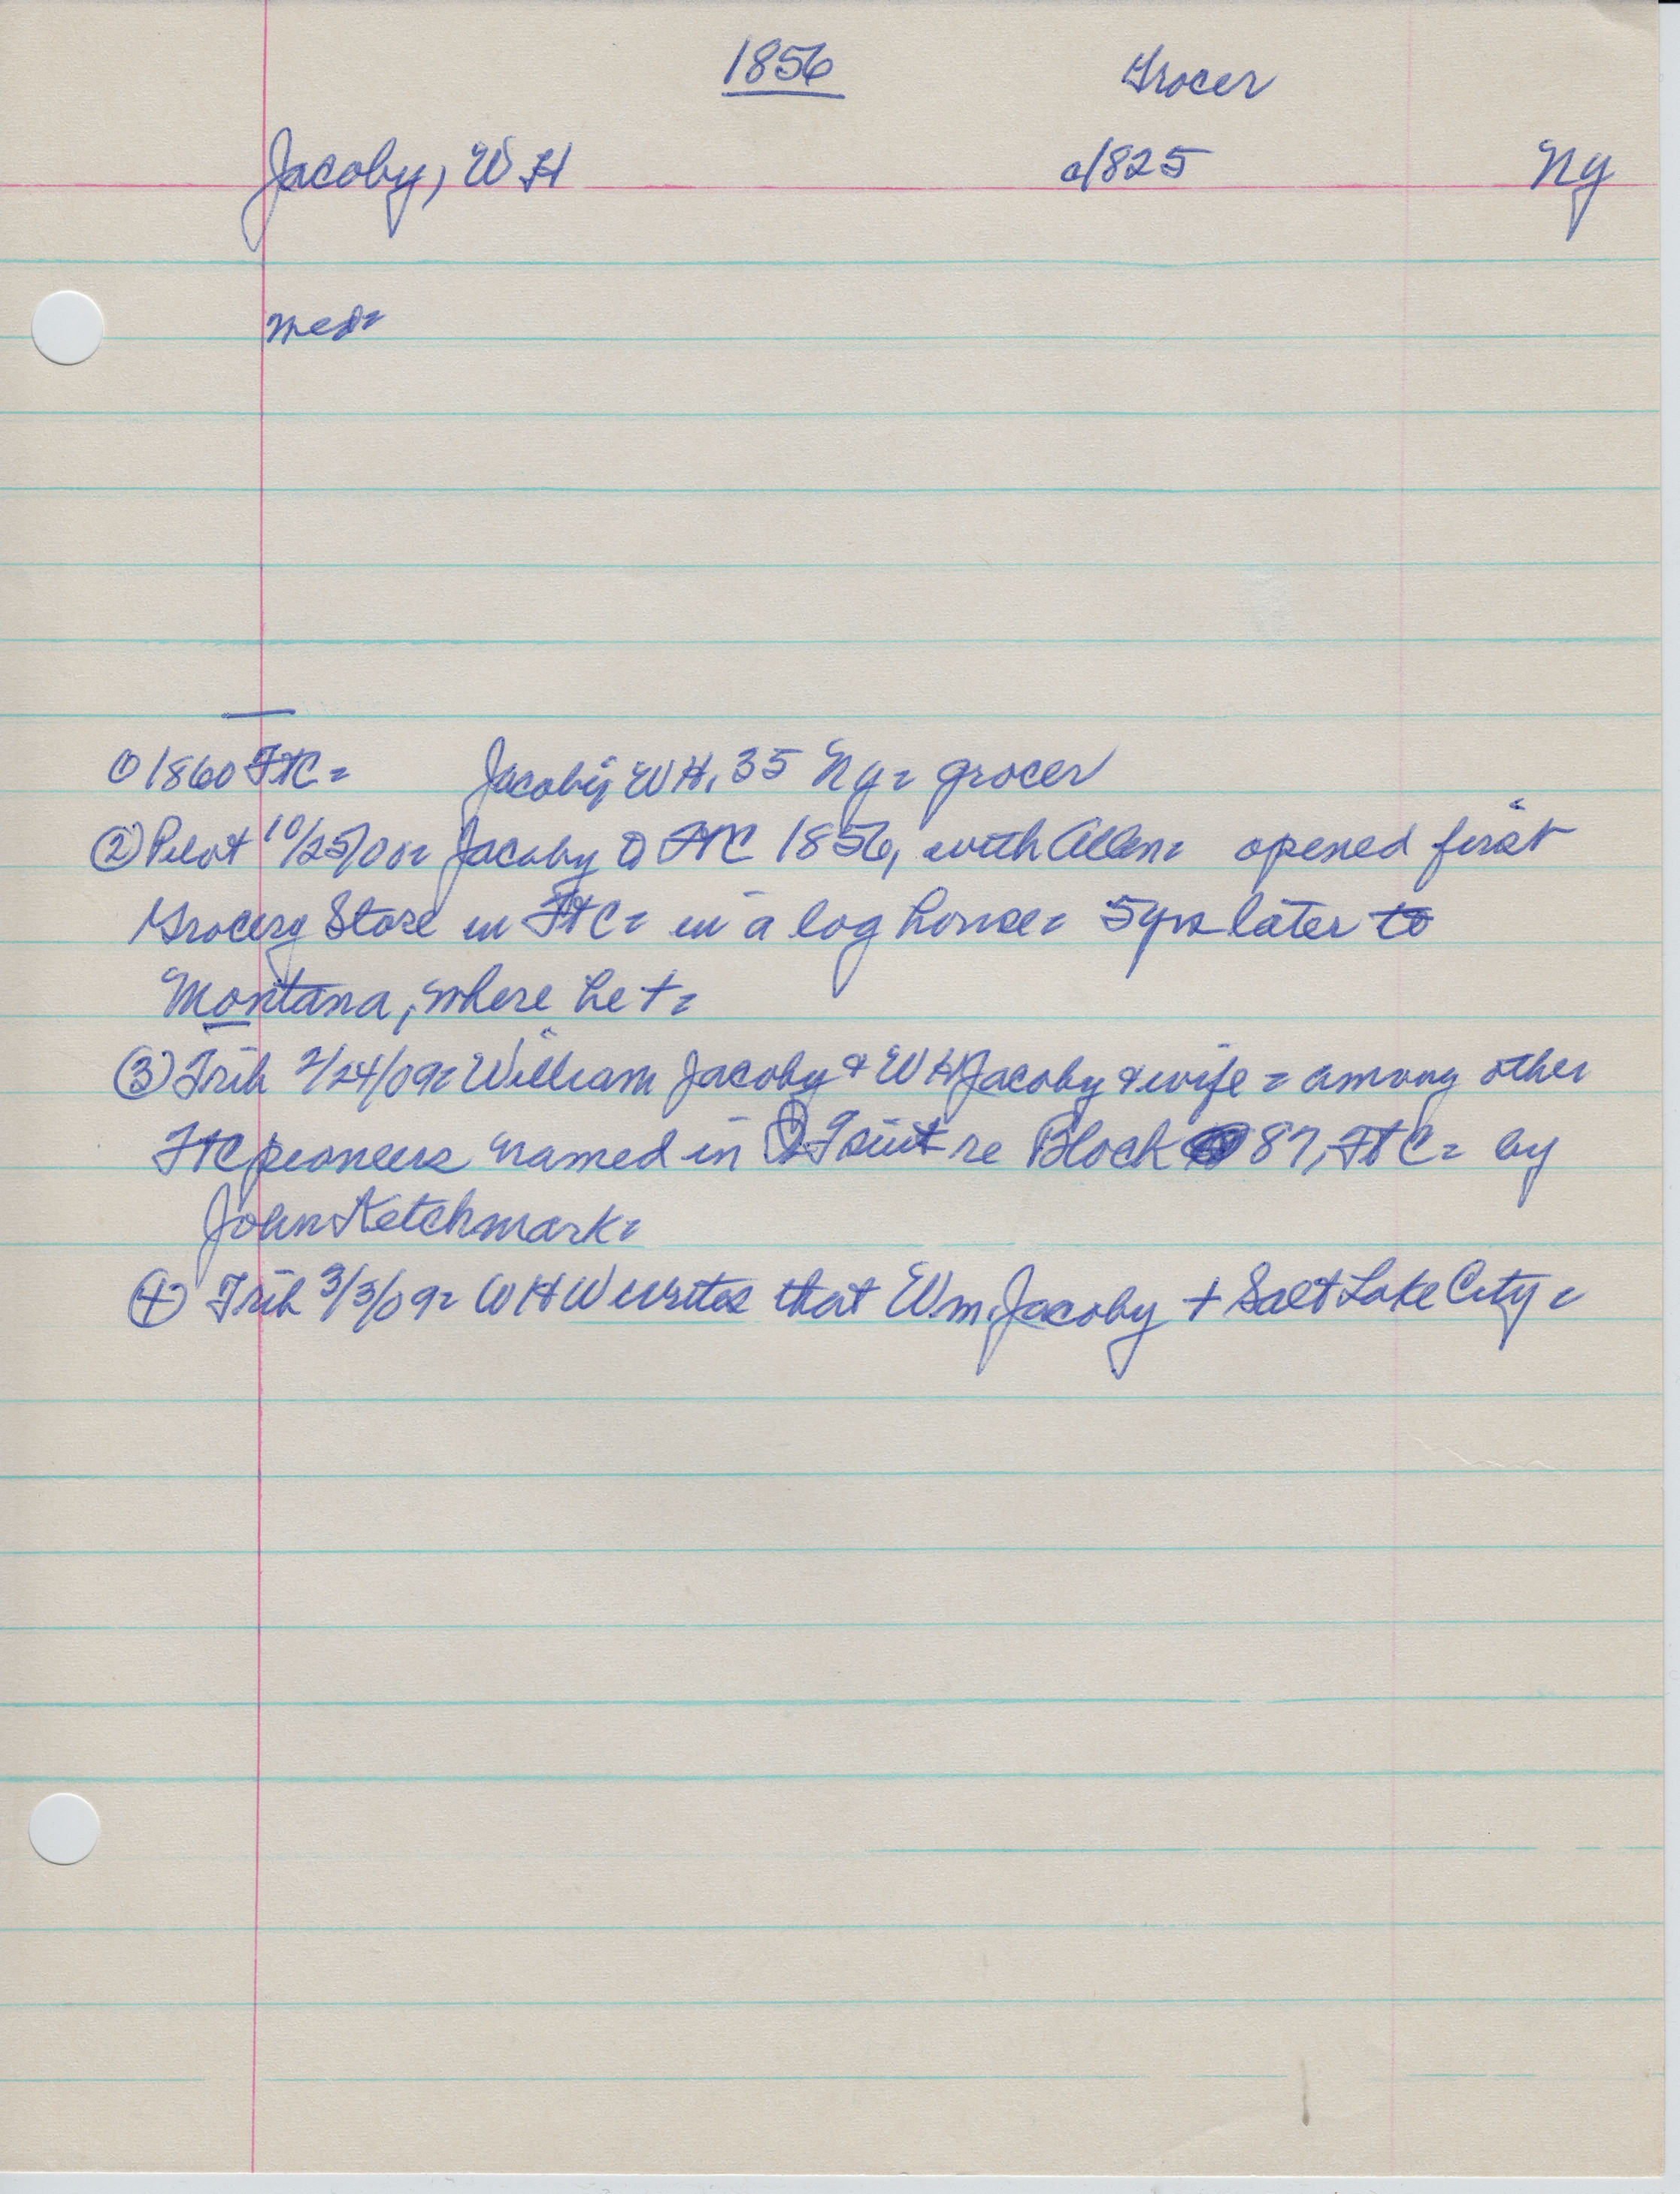 1856 Grocer
Jacoby, W H c1825 Ny
med=
① 1860 FtC= Jacoby, WH, 35 Ny= grocer
② Pilot 10/25/00= Jacoby FtC 1856, with Allen= opened first
Grocery Store in FtC= in a log house= 5yrs later to
Montana, where he +=
③ Trib 2/24/09= William Jacoby & WH Jacoby & wife = among other
FtC pioneers named in suit re Block 87, FtC= by
John Ketchmark=
④ Trib 3/3/09= WHW writes that Wm. Jacoby + Salt Lake City=